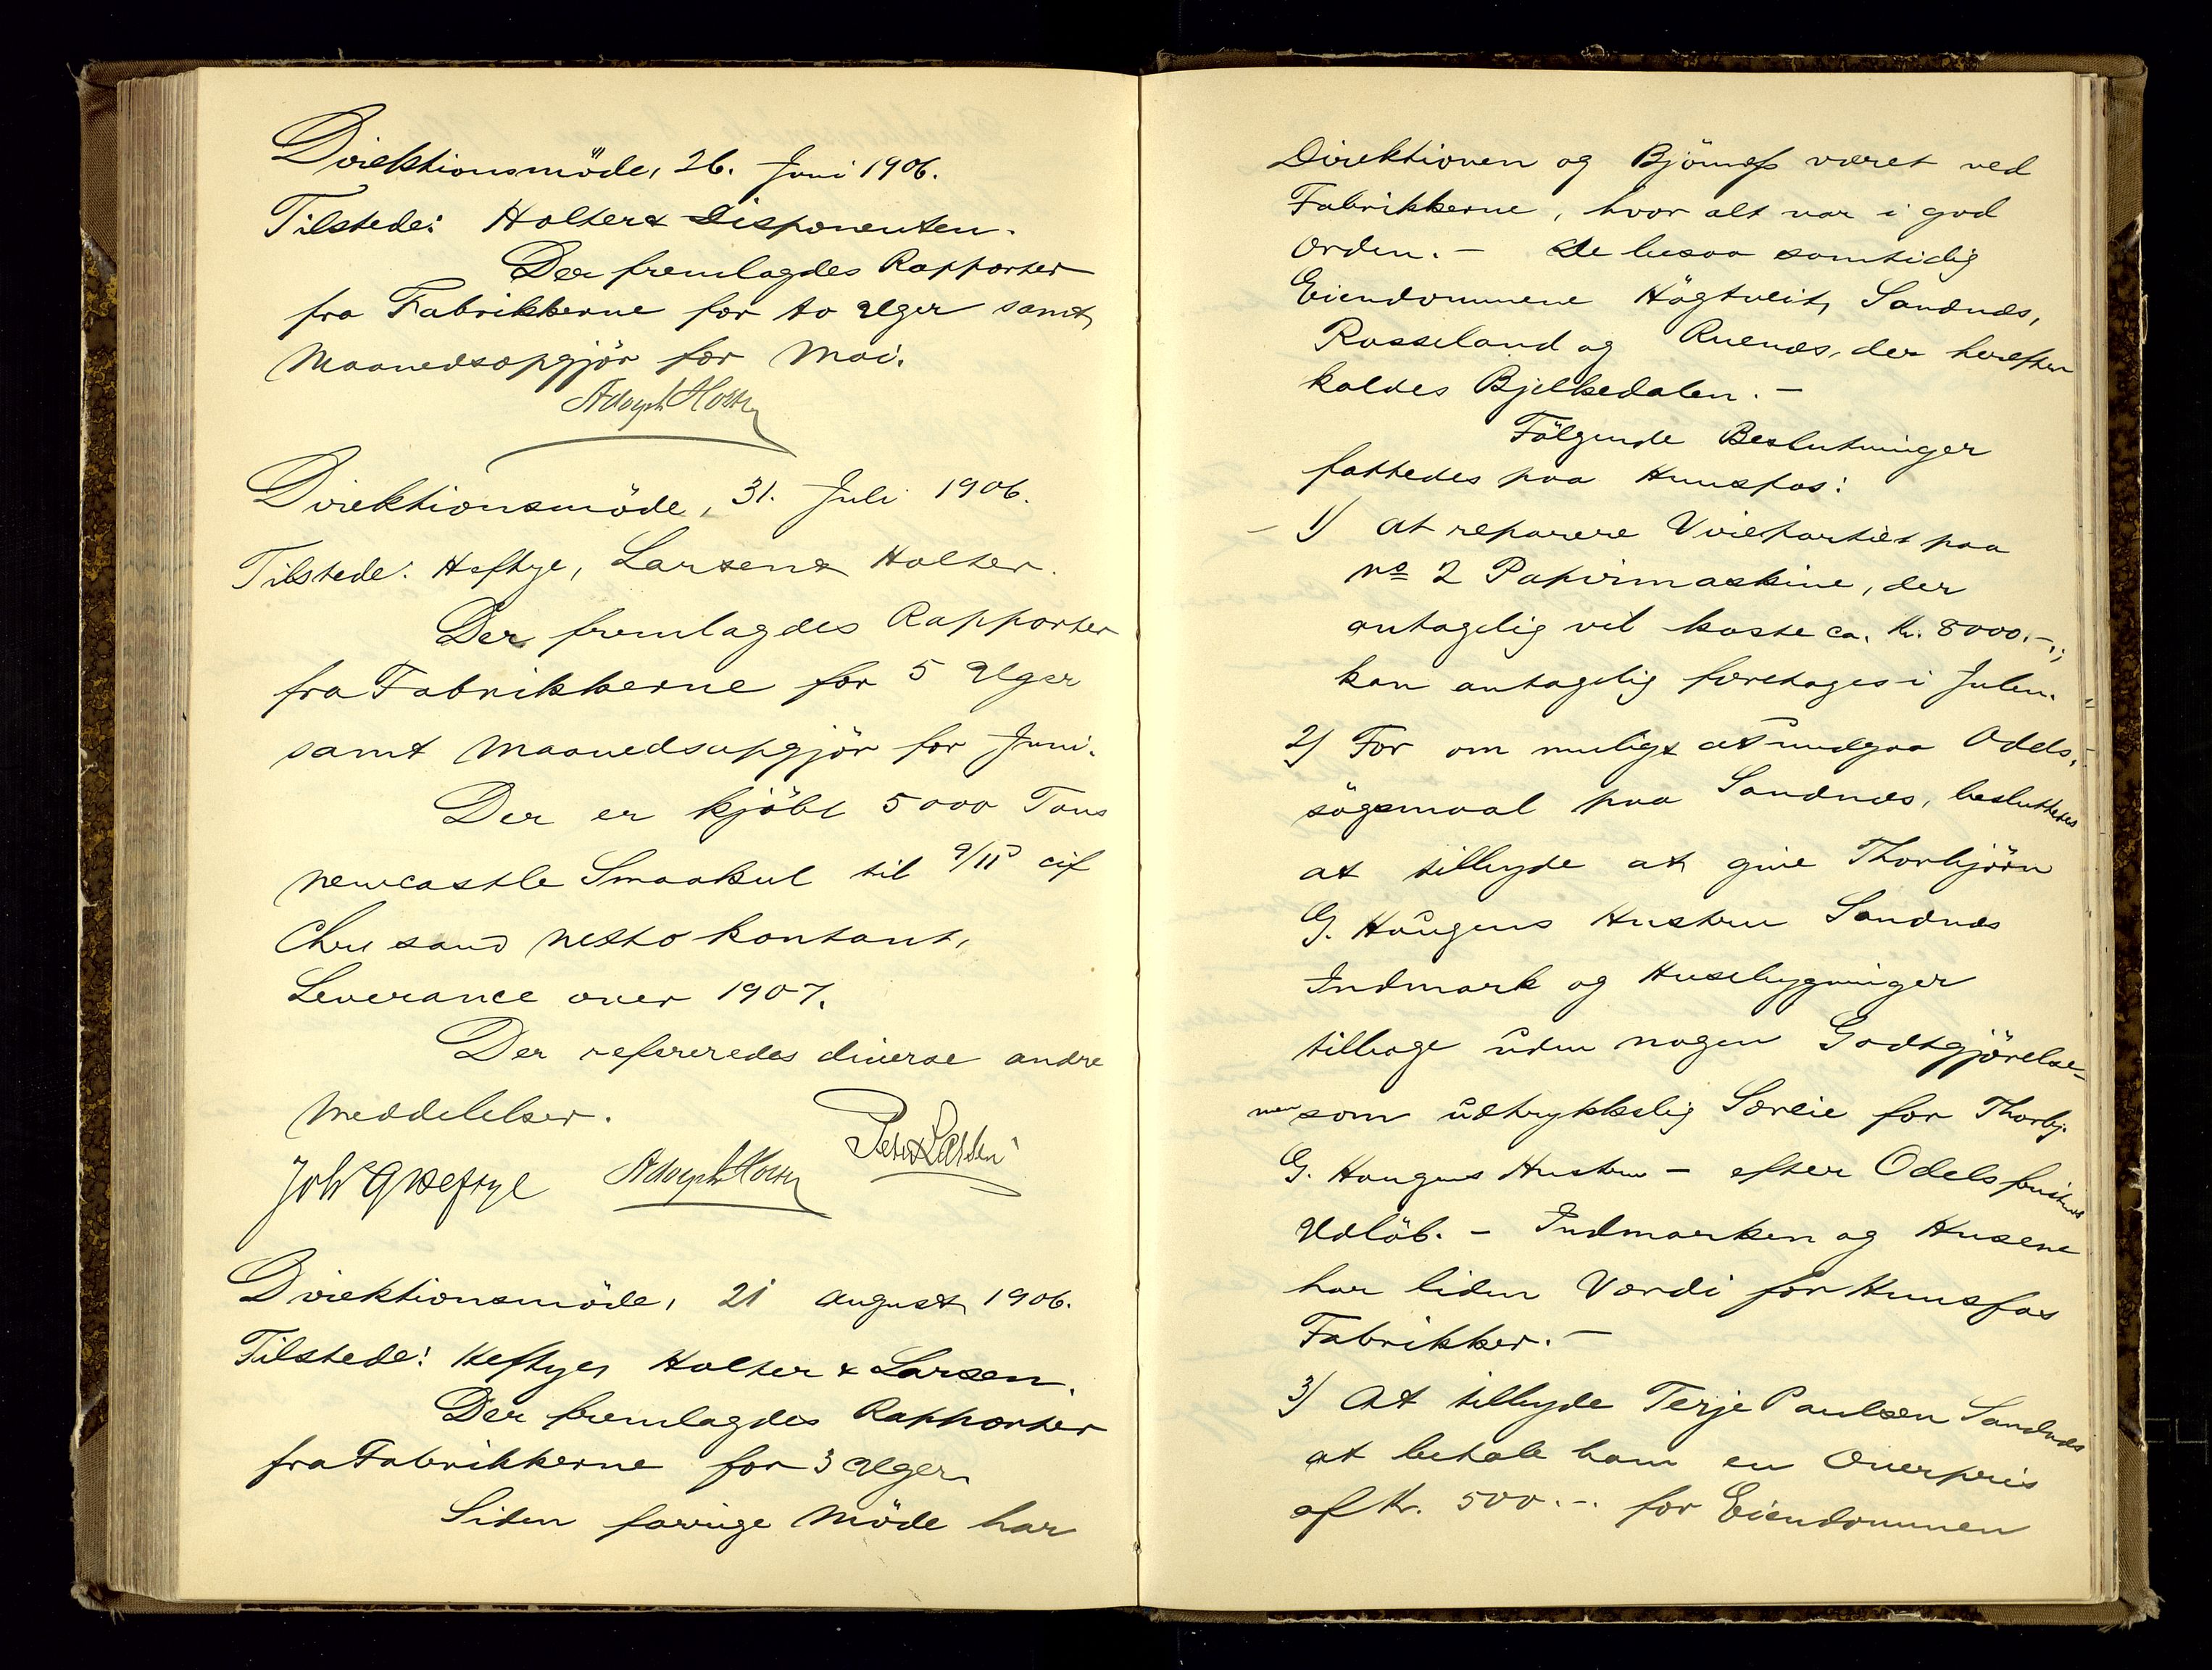 Direktionsmöde, 26. Juni 1906.
Tilstede: Holter & Disponenten.
Der fremlagdes Rapporter
fra Fabrikkerne for to Uger samt
Maanedsopgjör for Mai.
Adolph Holter
Direktionsmöde, 31. Juli 1906.
Tilstede: Heftye, Larsen & Holter.
Der fremlagdes Rapporter
fra Fabrikkerne for 5 Uger
samt Maanedsopgjör for Juni.
Der er kjöbt 5000 Tons
Newcastle Smaakul til 9/11 cif
Chrsand netto kontant,
Leverance over 1907.
Der refereredes diverse andre
Meddelelser.
Joh G Heftye Adolph Holter Peter Larsen
Direktionsmöde, 21 August 1906.
Tilstede: Heftye, Holter & Larsen.
Der fremlagdes Rapporter
fra Fabrikkerne for 3 Uger.
Siden forrige Möde har
Direktionen og Björness været ved
Fabrikkerne, hvor alt var i god
Orden. – De besaa samtidig
Eiendommene Högtveit, Sandnes,
Rosseland og Ruenes, der herefter
kaldes Bjelkedalen. –
Fölgende Beslutninger
fattedes paa Hunsfos:
1) At reparere Virepartiet paa
No 2 Papirmaskine, der
antagelig vil koste ca. Kr. 8000.-,;
kan antagelig foretages i Julen.
2) For om muligt at undgaa Odels-
sögsmaal paa Sandnes, besluttedes
at tilbyde at give Thorbjörn
G. Haugens Hustru Sandnes
Indmark og Husebygninger
tilbage uden nogen Godtgjörelse –
men som udtrykkelig Særeie for Thorbj.
G. Haugens Hustru – efter Odelsfristens
Udlöb. – Indmarken og Husene
har liden Værdi for Hunsfos
Fabrikker. –
3) At tilbyde Terje Paulsen Sandnes
at betale ham en Overpris
af Kr. 500.-. for Eiendommen